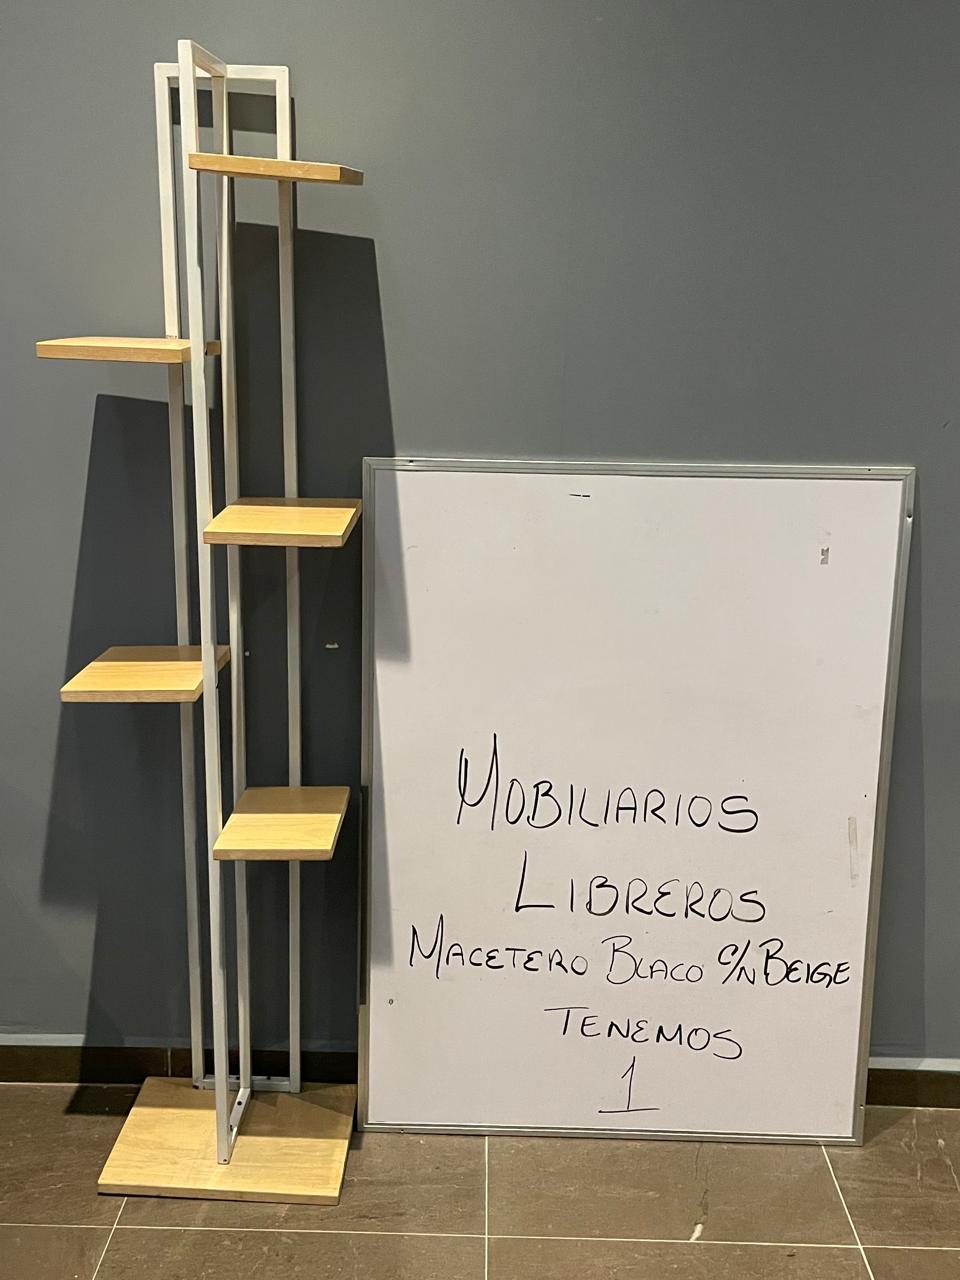 MOBILIARIOS
LIBREROS
MACETERO BLACO C/N BEIGE
TENEMOS
1